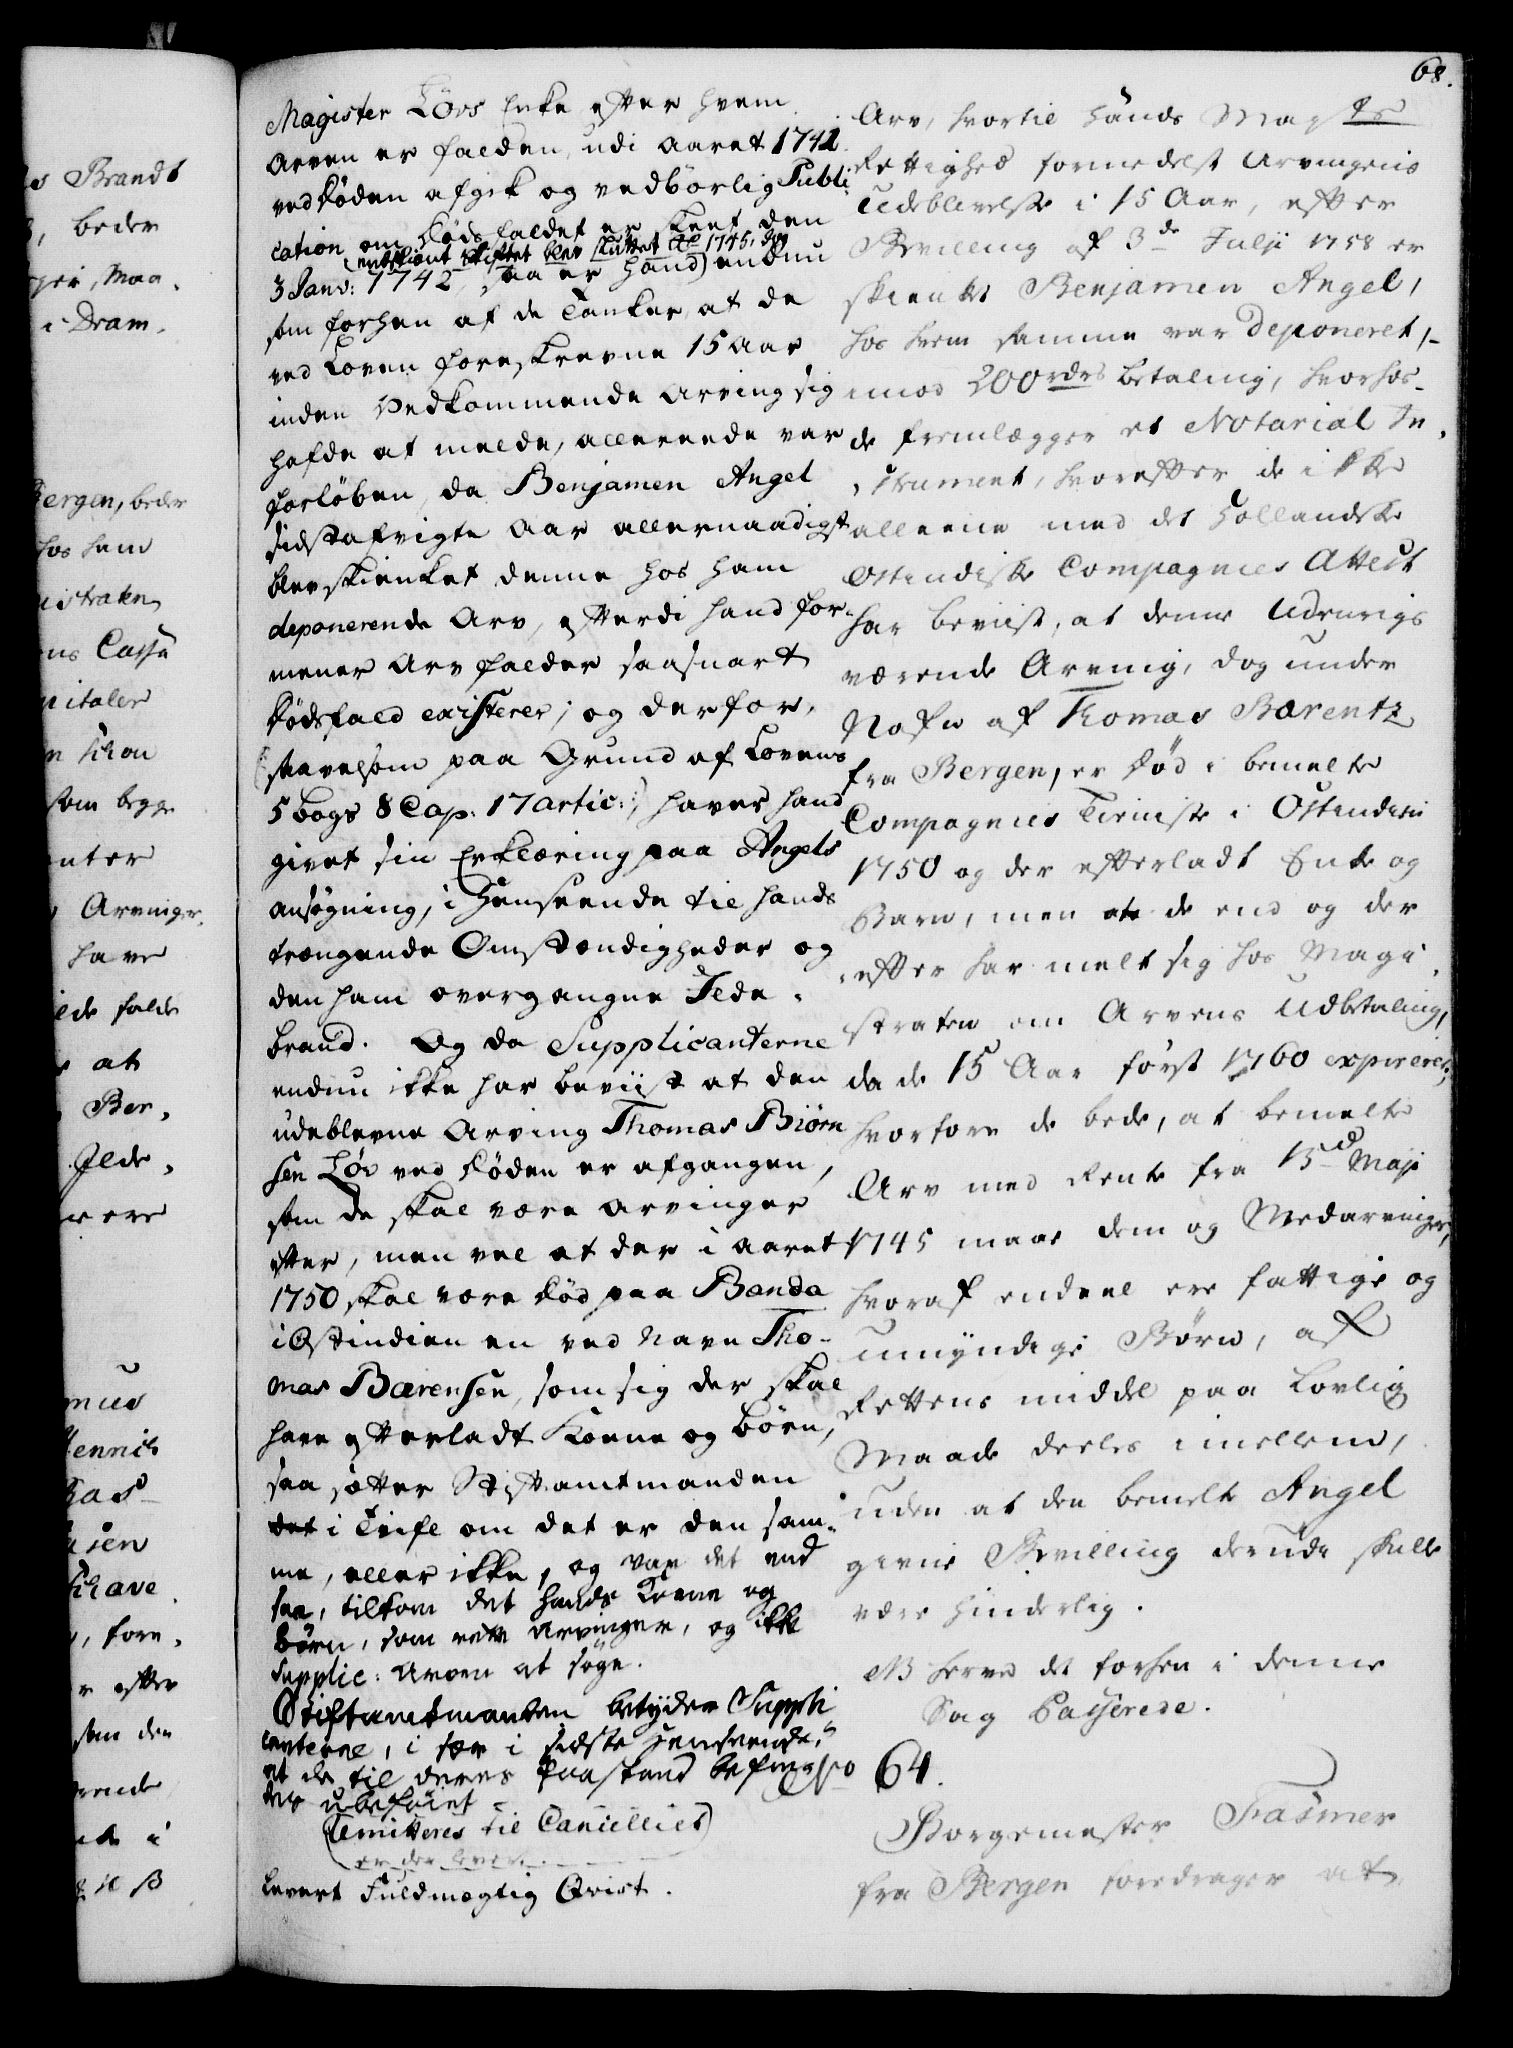 68.
Magister Lövs Enke efter hvem
Arven er falden, udi Aaret 1741
ved Döden afgik og vedbörlig Publi-
cation om Dödsfaldet er skeet den
(endskiönt Skiftet blev sluttet Ao 1745, dog
3 Janv: 1742, saa er Hand) endnu
som forhen af de Tanker, at de
ved Loven foreskrevne 15 Aar
inden Vedkommende Arving sig
hafde at melde, allereede var
forlöben, da Benjamen Angel
sidstafvigte Aar allernaadigst
blev skienket denne hos ham
deponerende Arv, efterdi hand for-
mener Arv falder saasnart
Dödsfald existerer; og derfor,
(: saavelsom paa Grund af Lovens
5 bogs 8 Cap: 17 Artic: :) haver hand
givet sin Erklæring paa Angels
ansögning, i Henseende til hands
trængende Omstændigheder og
den ham overgangne Ilde-
brand. Og da Supplicanterne
endnu ikke har beviist at den
udeblevne Arving Thomas Biörn
sen Löv ved Döden er afgangen,
som de skal være Arvinger
efter, men vel at der i Aaret
1750 skal være död paa Banda
i Ostindien en ved Navn Tho-
mas Bærensen, som sig der skal
have efterladt Kone og Börn,
saa sætter Stiftamtmanden
det i Tvifl om det er den sam-
me, eller ikke, og var det end
saa, tilkom det hands Kone og
Börn, som rette Arvinger, og ikke
Supplic: Arven at söge.
Stiftamtmanden betyder Suppli
canterne, i sær i sidste Henseende,
at de til deres Paastand befindes
der ubeföiet
(Remitteres til Cancelliet)
er der levert
Levert Fuldmægtig Qvist.
Arv, hvortil Hands Mayts
Rettighed formedelst Arvingens
Udeblivelse i 15 Aar, efter
Bevilling af 3de Julji 1758 er
skienket Benjamen Angel,
hos hvem samme var deponeret,
imod 200 rdrs betaling, hvorhos
de fremlægger et Notarial In-
strument, hvorefter de ikke
alleene med det Hollandske
Ostindiske Compagnies Attest
har beviist, at denne Udenrigs
værende Arving, dog under
Nafn af Thomas Bærentz
fra Bergen, er död i bemelte
Compagnies Tieniste i Ostindien
1750 og der efterladt Enke og
Barn, men at de end og der
efter har melt sig hos Magi-
straten om Arvens Udbetaling,
da de 15 Aar först 1760 expirerer,
hvorfore de bede, at bemelte
Arv med Rente fra 15de Maji
1745 maae dem og Medarvinger,
hvoraf endeel ere fattige og
umyndige Börn, af
Rettens middel paa Lovlig
Maade deeles imellem,
uden at den bemelte Angel
givne Bevilling derudi skulle
være Hinderlig.
NB herved det forhen i denne
Sag Passerede.
No 64.
Borgemester Fasmer
fra Bergen foredrager at